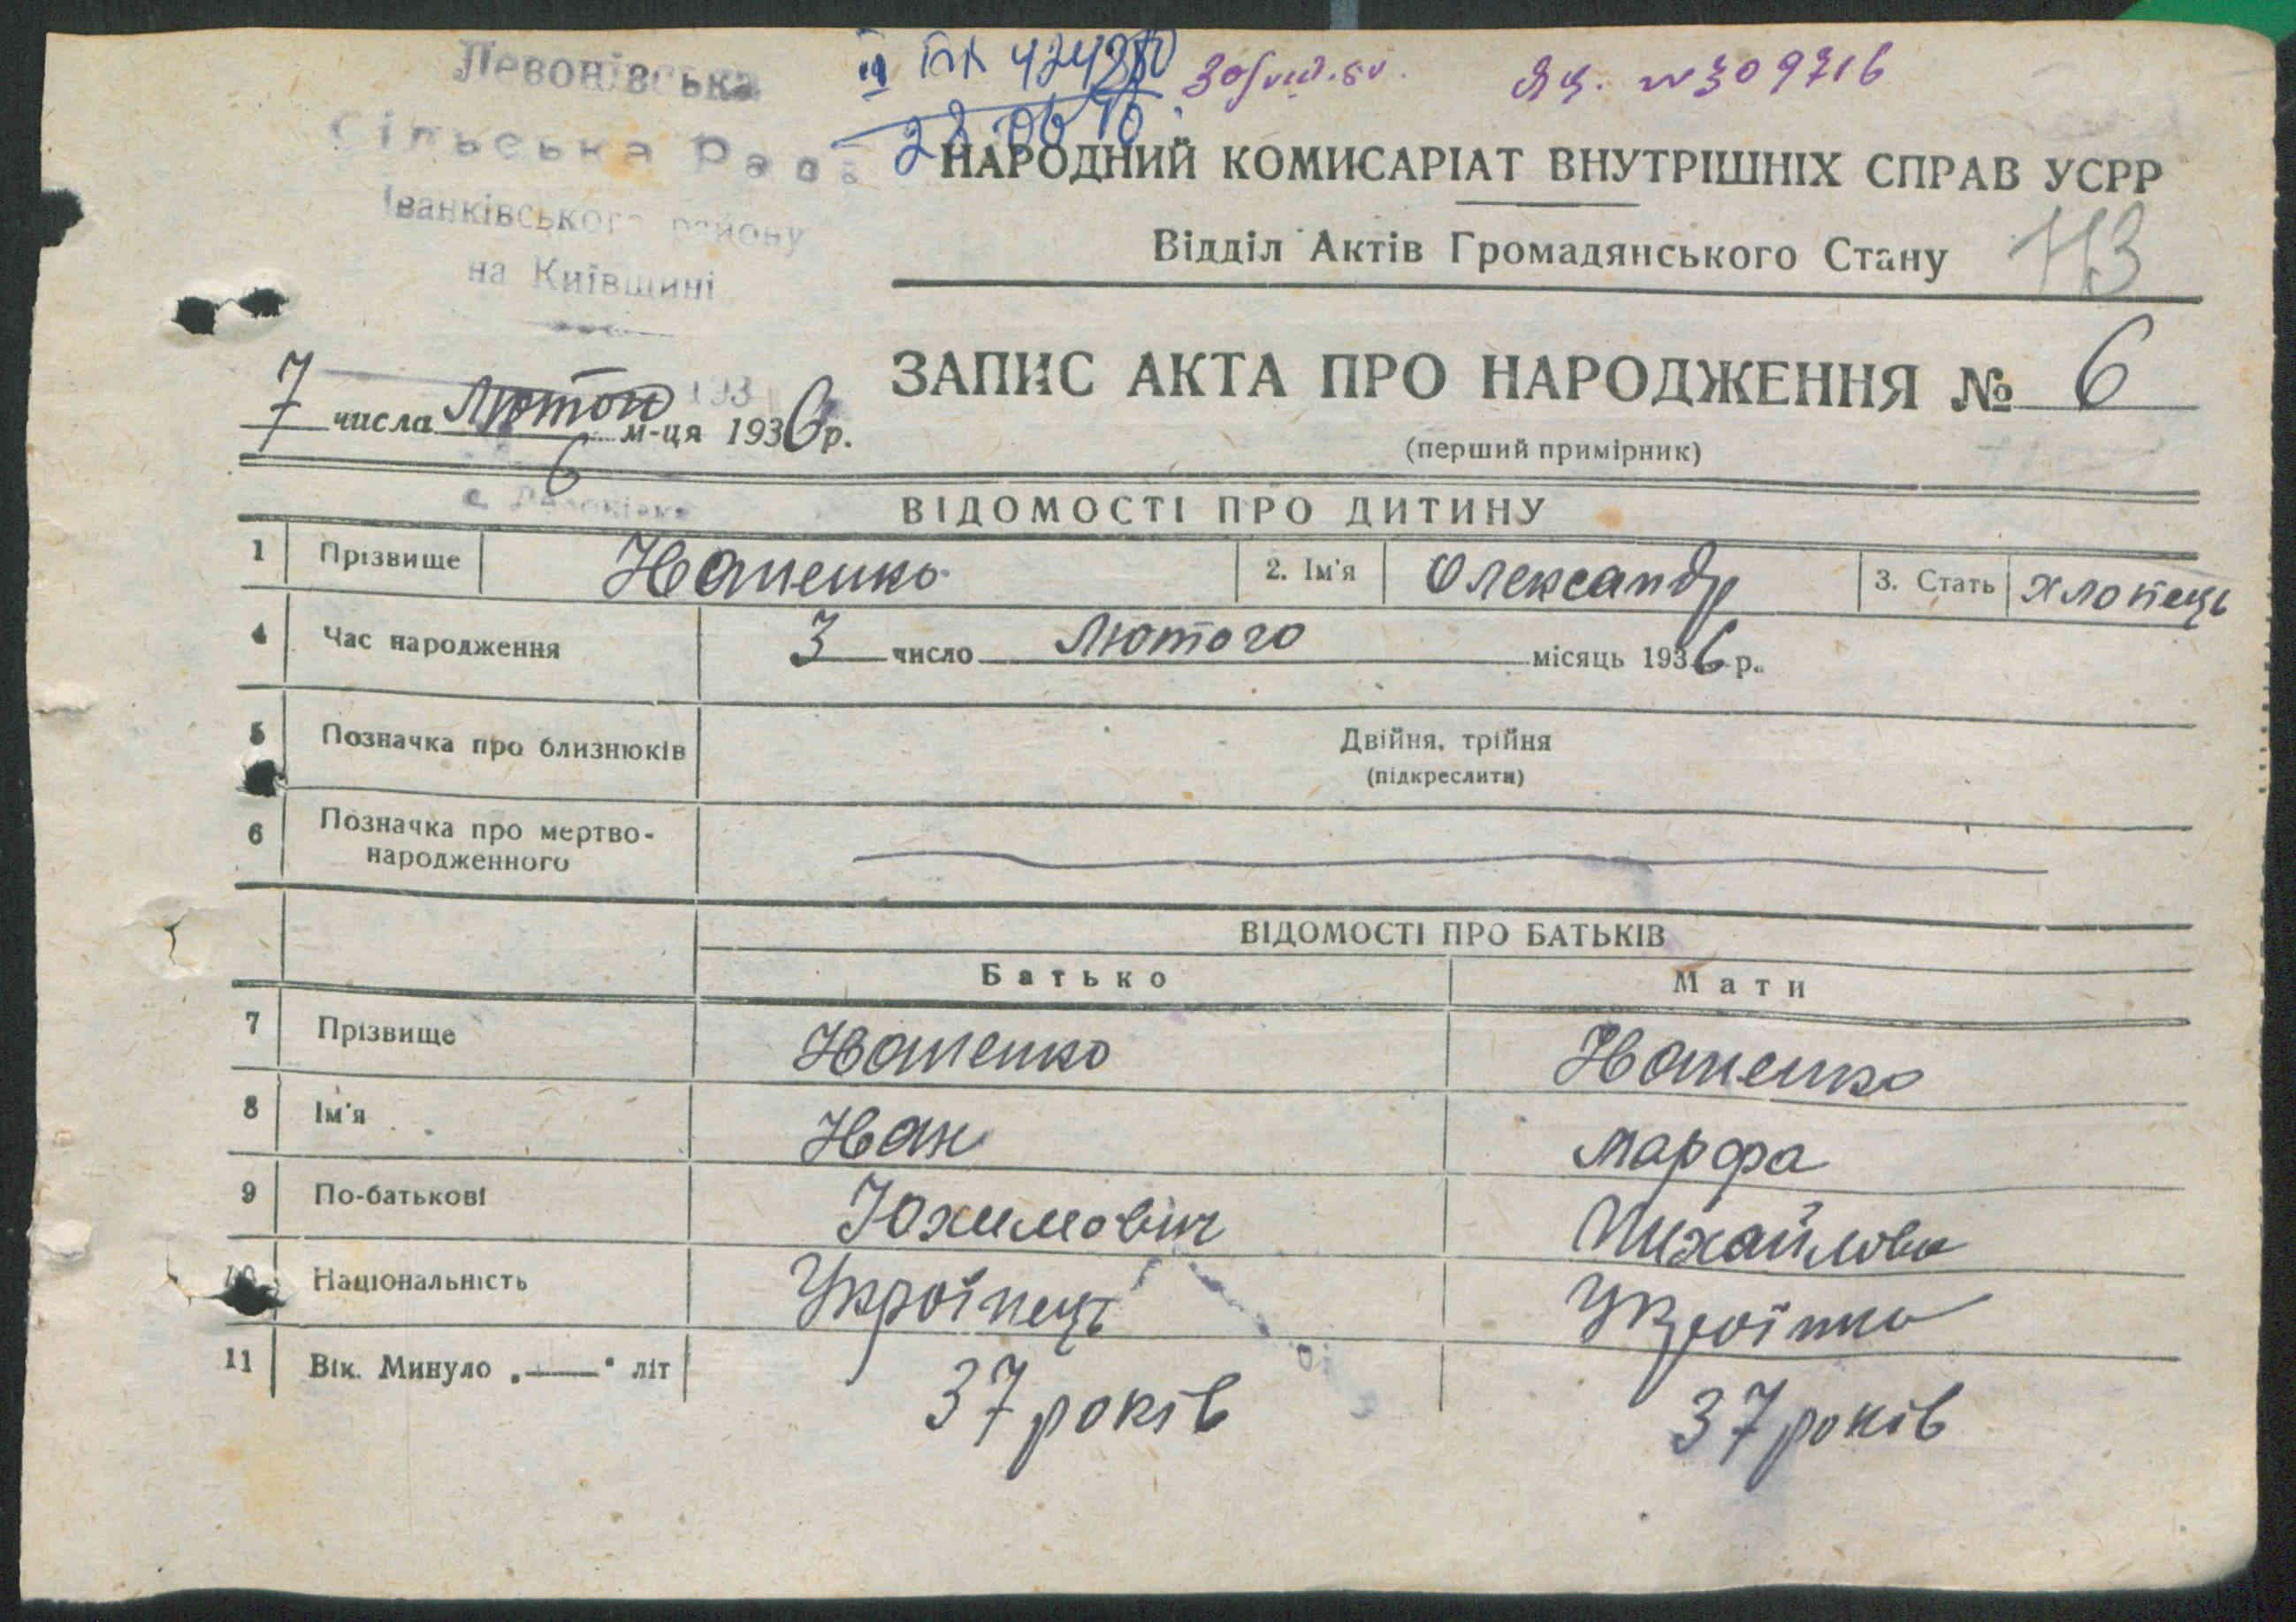 Левонівська
Сільська Рада
Іванківського району
на Київщині
ІІІ 
Яц. №309716
НАРОДНИЙ КОМИСАРІАТ ВНУТРІШНІХ СПРАВ УСРР
Відділ Актів Громадянського Стану 113
ЗАПИС АКТА ПРО НАРОДЖЕННЯ № 6
(перший примірник)
193
7 числа Лютого м-ця 1936 р.
6
с. Левонівка
ВІДОМОСТІ ПРО ДИТИНУ
1 Прізвище Іваненко 2. Ім'я Олександр 3. Стать хлопець
4 Час народження 3 число Лютого місяць 1936 р.
5 Позначка про близнюків Двійня, трійня
(підкреслити)
6 Позначка про мертво-
народженного
ВІДОМОСТІ ПРО БАТЬКІВ
Батько Мати
7 Прізвище Іваненко Іваненко
8 Ім'я Іван Марфа
9 По-батькові Юхимович Михайловна
10 Національність Українець Українка
11 Вік. Минуло „—" літ 37 років 37 років